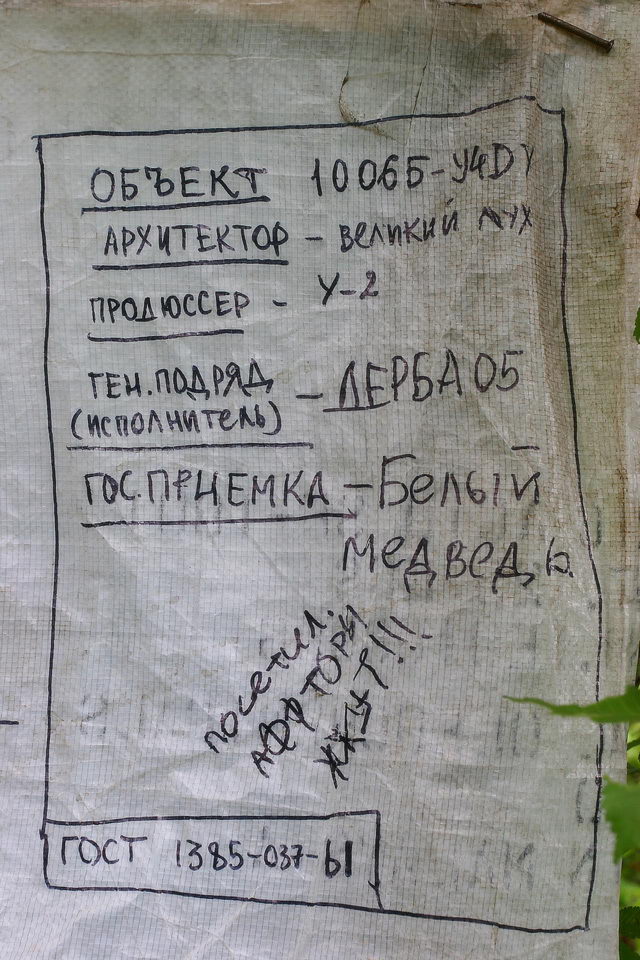 ОБЪЕКТ 1006Б-У4DУ
АРХИТЕКТОР - ВЕЛИКИЙ МУХ
ПРОДЮССЕР - У-2
ГЕН.ПОДРЯД
(ИСПОЛНИТЕЛЬ) - ДЕРБА05
ГОС.ПРИЕМКА - Белый
медведь.
посетил.
АФФТОРИ
ЖЖУТ!!!
ГОСТ 1385-037-Ы